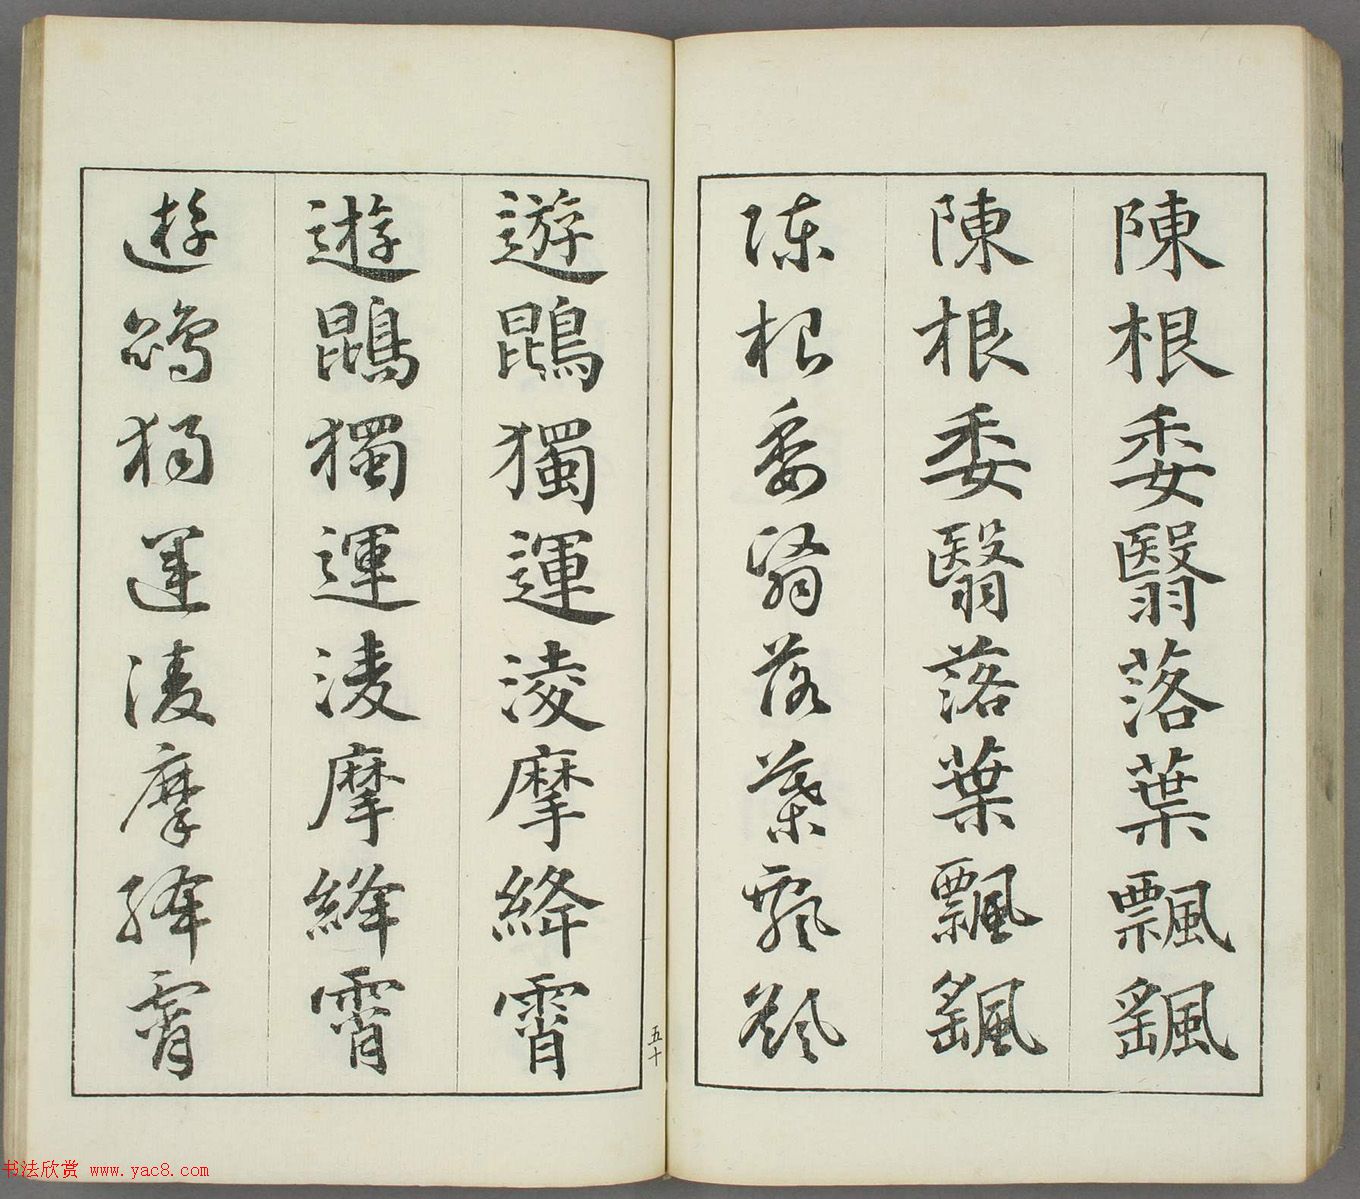 陳根委翳落葉飄颻
陳根委翳落葉飄颻
陳根委翳落葉飄颻
遊鵾獨運淩摩絳霄
遊鵾獨運淩摩絳霄
遊鵾獨運淩摩絳霄
五十
书法欣赏 www.yac8.com